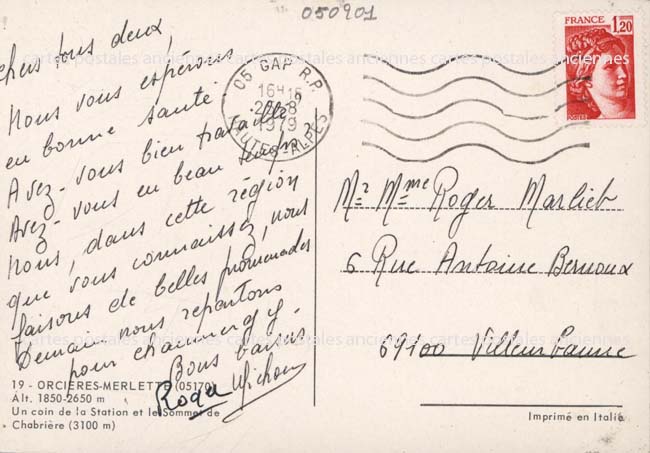 050901
chers tous deux,
Nous vous espérons
en bonne santé
Avez-vous bien travaillé
Avez-vous eu beau temps?
Nous, dans cette région
que vous connaissez, nous
faisons de belles promenades
Demain nous repartons
pour
Bons baisers
Roger Michou
19 - ORCIÈRES-MERLETTE (05170)
Alt. 1850-2650 m
Un coin de la Station et le Sommet de
Chabrière (3100 m)
05 GAP R.P.
16H15
8
1979
HAUTES-ALPES
FRANCE 1,20
Mr Mme Roger Marlieb
6 Rue Antoine Bernoux
69100 Villeurbanne
Imprimé en Italie
cartes postales anciennes cartes postales anciennes